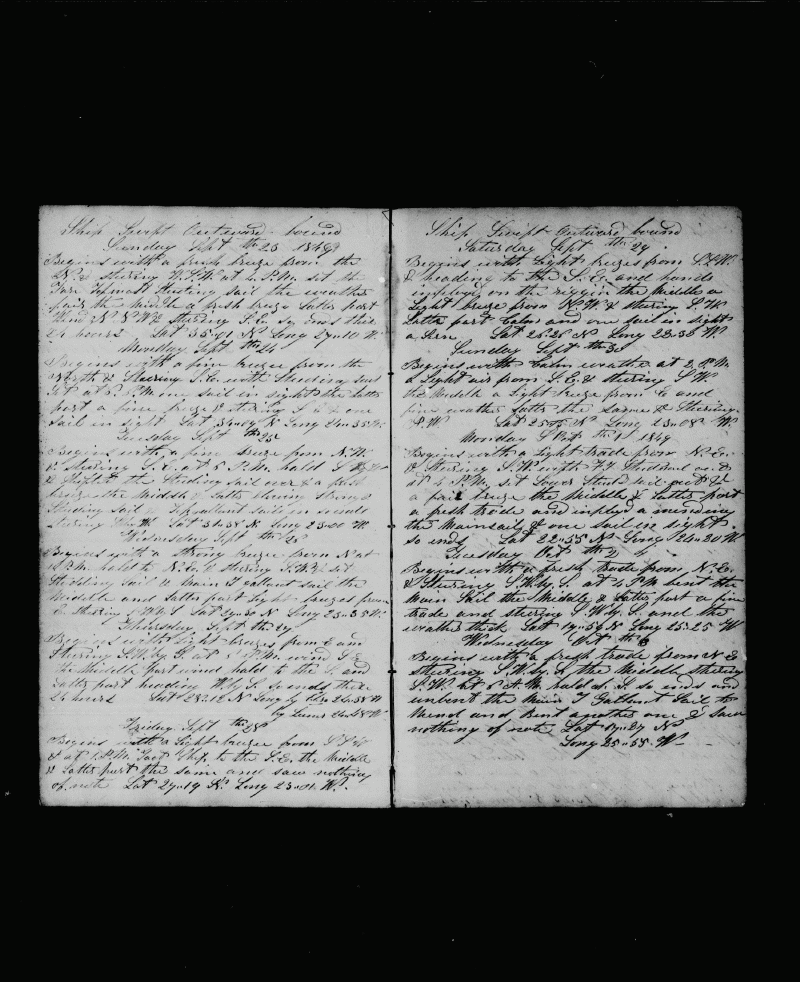 Ship Swift Outward bound
Sunday Sept th 23 1849
Begins with a fresh breeze from the
N. & steering at P.M. set the
Fore topmast studing sail the weather
fair the Middle a fresh breeze Latter part
Wind N N W & steering S. E. so ends this
24 hours Lat 35-01 N Long W
Monday Sept th 24
Begins with a fine breeze from the
North & Steering S. E. with studing sail
set at P.M one sail in sight the latter
part a fine breeze & steering S E & one
sail in sight Lat N Long 24-35 W
Tuesday Sept th 25
Begins with a fine breeze from N. W.
& steering S. E. at 5 P.M. hald
& the studing sail over & a fresh
breeze the Middle & Latter blowing strong
Studing Sail & Sails in
steering W Lat 31-38 N Long 23-00 W
Wednesday Sept th 26
Begins with a strong breeze from N at
P.M. hald to N. E. & steering S.W. & set
Studding sail & Main T Gallant sail the
Middle and Latter part Light breezes from
E. steering S W by S Lat 29-30 N Long 23-35 W
Thursday Sept th 27
Begins with Light breezes from E and
Steering S.W. by S. at P.M. wind S E
the Middle part wind hald to the S. and
Latter part heading W. by S. so ends these
24 hours Lat 28-12 N Long by 24-38 W
by Lunar 24-48 W
Friday Sept th 28
Begins with a Light breeze from S S W
& at 1 P.M. Tact Ship to the S. E. the Middle
& Latter part the same and saw nothing
of note Lat 27-19 N. Long 23-01 W.
Ship Swift Outward bound
Saturday Sept th 29
Beggins with Light breeze from S S W.
& heading to the S. E. and hands
imployd on the riggin the Middle a
Light breeze from N. W. & stering S. W
Latter part Calm and one sail in sight
a Stern Lat 26-26 N Long 22-36 W.
Sunday Sept th 30
Begins with Calm weather at 2 P.M.
a Light air from S. E. & stering S W.
the Middle a Light breeze from E and
fine weather latter the same & Steering
S. W. Lat 25 N Long 23-08 W
Monday th 1 1849
Begins with a Light trade from N. E.
& Stering S.W with F.T. Studsail on &
at 4 P.M. set Lower Stud sail and &
a fair breeze the Middle & Latter part
a fresh trade and imployd a mending
the Mainsail & one Sail in sight.
so ends Lat 22-55 N Long 24-30 W
Tuesday Oct th 2
Begins with a fresh trade from N. E.
& Steering S.W by S. at 4 P.M bent the
Main Sail the Middle & Latter part a fine
trade and stering S. W by S. and the
weather thick Latt 19-56 N Long 25-25 W
Wednesday Oct th 3
Begins with a fresh trade from N E
Steering S. W. by S. the Middle stering
S. W. at 6 A. M. hald S. so ends and
unbent the Main T Gallant Sail to
Mend and Bent another one & Saw
nothing of note Lat 17-27 N
Long 25-55 W